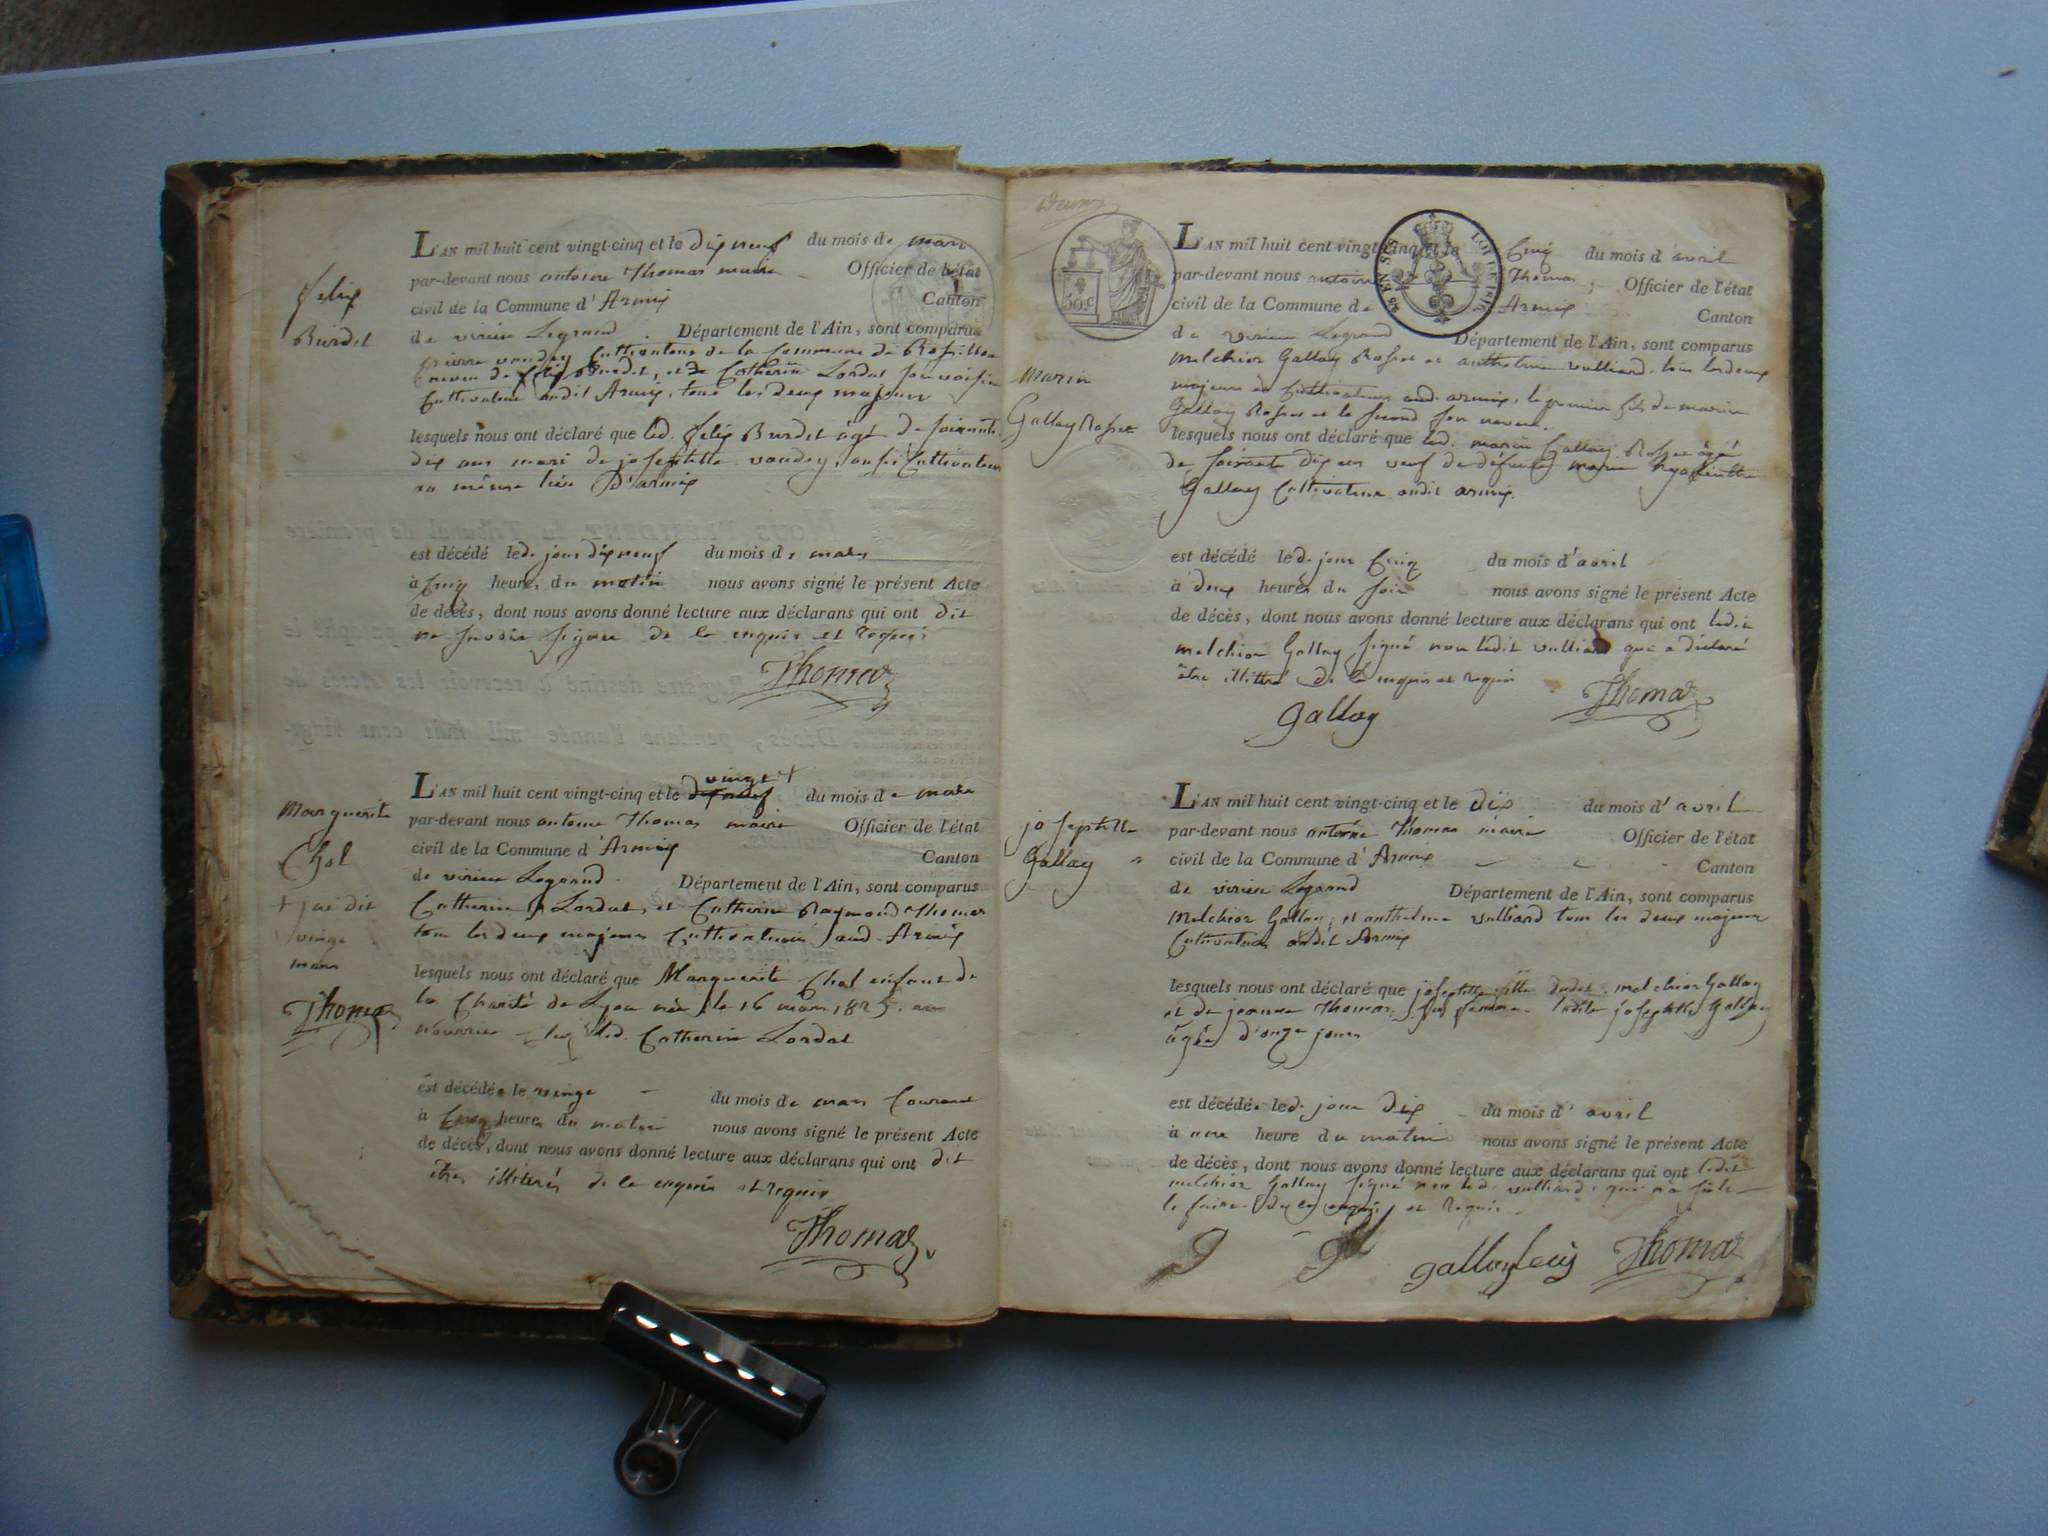 Felix
Burdet
L'AN mil huit cent vingt-cinq et le dixneuf du mois de mars
par-devant nous antoine Thomas maire Officier de l'état
civil de la Commune d'Armix Canton
de virieu Legrand Département de l'Ain, sont comparus
pierre vandey Cultivateur de la Commune de Rossillon
neveu de felix Burdet, et Catherin Lordat son voisin
Cultivateur audit Armix, tous les deux majeurs
lesquels nous ont déclaré que led. felix Burdet âgé de soixante
dix ans mari de josephtte vandey, aussi Cultivateur
au même lieu D'armix
est décédé led. jour dixneuf du mois de mars
à cinq heures du matin nous avons signé le présent Acte
de décès, dont nous avons donné lecture aux déclarans qui ont dit
ne savoir signer de ce enquis et requis
Thomas
Marguerite
Chol
+ jai dit
vingt
mars
Thomas
vingt +
L'AN mil huit cent vingt-cinq et le dixneuf du mois de mars
par-devant nous antoine Thomas maire Officier de l'état
civil de la Commune d'Armix Canton
de virieu Legrand Département de l'Ain, sont comparus
Catherin Lordat, et Catherin Raymond Thomas
tous les deux majeurs Cultivateurs aud. Armix
lesquels nous ont déclaré que Marguerite Chol enfant de
la Charité de Lyon née le 16 mars 1825, en
nourrice led. Catherin Lordat
est décédée le vingt du mois de mars Courant
à Cinq heures du matin nous avons signé le présent Acte
de décès, dont nous avons donné lecture aux déclarans qui ont dit
être illiterés de ce enquis et requis
Thomas
50 c
LOI DE 1816
L'AN mil huit cent vingt-cinq et le Cinq du mois d'avril
par-devant nous antoine Thomas, Officier de l'état
civil de la Commune de Armix Canton
de virieu Legrand Département de l'Ain, sont comparus
Marin
Gallay Rosset
melchior Gallay Rosset et anthelme vulliard, tous les deux
majeurs et Cultivateurs aud. armix, le premier fils de marin
Gallay Rosset et le second son neveu.
lesquels nous ont déclaré que led. marin Gallay Rosset âgé
de soixante dix ans veuf de défunte marie hyacinthe
Gallay Cultivateur audit armix.
est décédé led. jour Cinq du mois d'avril
à deux heures du soir nous avons signé le présent Acte
de décès, dont nous avons donné lecture aux déclarans qui ont ledit
melchior Gallay signé non ledit vulliard qui a déclaré
être illittré de ce enquis et requis
Gallay Thomas
josephtte
Gallay
L'AN mil huit cent vingt-cinq et le dix du mois d'avril
par-devant nous antoine Thomas maire Officier de l'état
civil de la Commune d'Armix Canton
de virieu Legrand Département de l'Ain, sont comparus
Melchior Gallay, et anthelme vulliard tous les deux majeurs
Cultivateurs audit Armix
lesquels nous ont déclaré que josephtte fille dudit melchior Gallay
et de jeanne Thomas, sa femme. ladite josephtte Gallay
âgée d'onze jours
est décédée led. jour dix du mois d'avril
à une heure du matin nous avons signé le présent Acte
de décès, dont nous avons donné lecture aux déclarans qui ont ledit
melchior Gallay signé non led. vulliard, qui n'a su
le faire de ce enquis et requis
Thomas